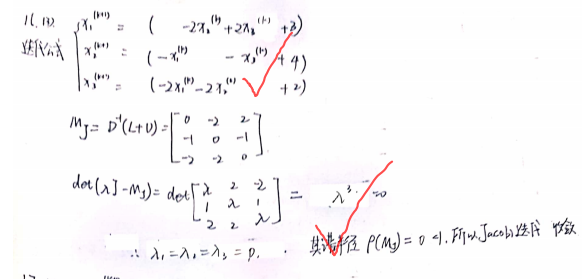 11. (2)
迭代公式 { x₁⁽ᵏ⁺¹⁾ = ( -2x₂⁽ᵏ⁾ + 2x₃⁽ᵏ⁾ + 3)
x₂⁽ᵏ⁺¹⁾ = (-x₁⁽ᵏ⁾ - x₃⁽ᵏ⁾ + 4)
x₃⁽ᵏ⁺¹⁾ = (-2x₁⁽ᵏ⁾ - 2x₂⁽ᵏ⁾ + 2)
M_J = D⁻¹(L+U) = [0 -2 2
-1 0 -1
-2 -2 0]
det(λI - M_J) = det [λ 2 -2
1 λ 1
2 2 λ] = λ³ = 0
∴ λ₁ = λ₂ = λ₃ = 0. 其谱半径 ρ(M_J) = 0 < 1. 所以Jacobi迭代 收敛